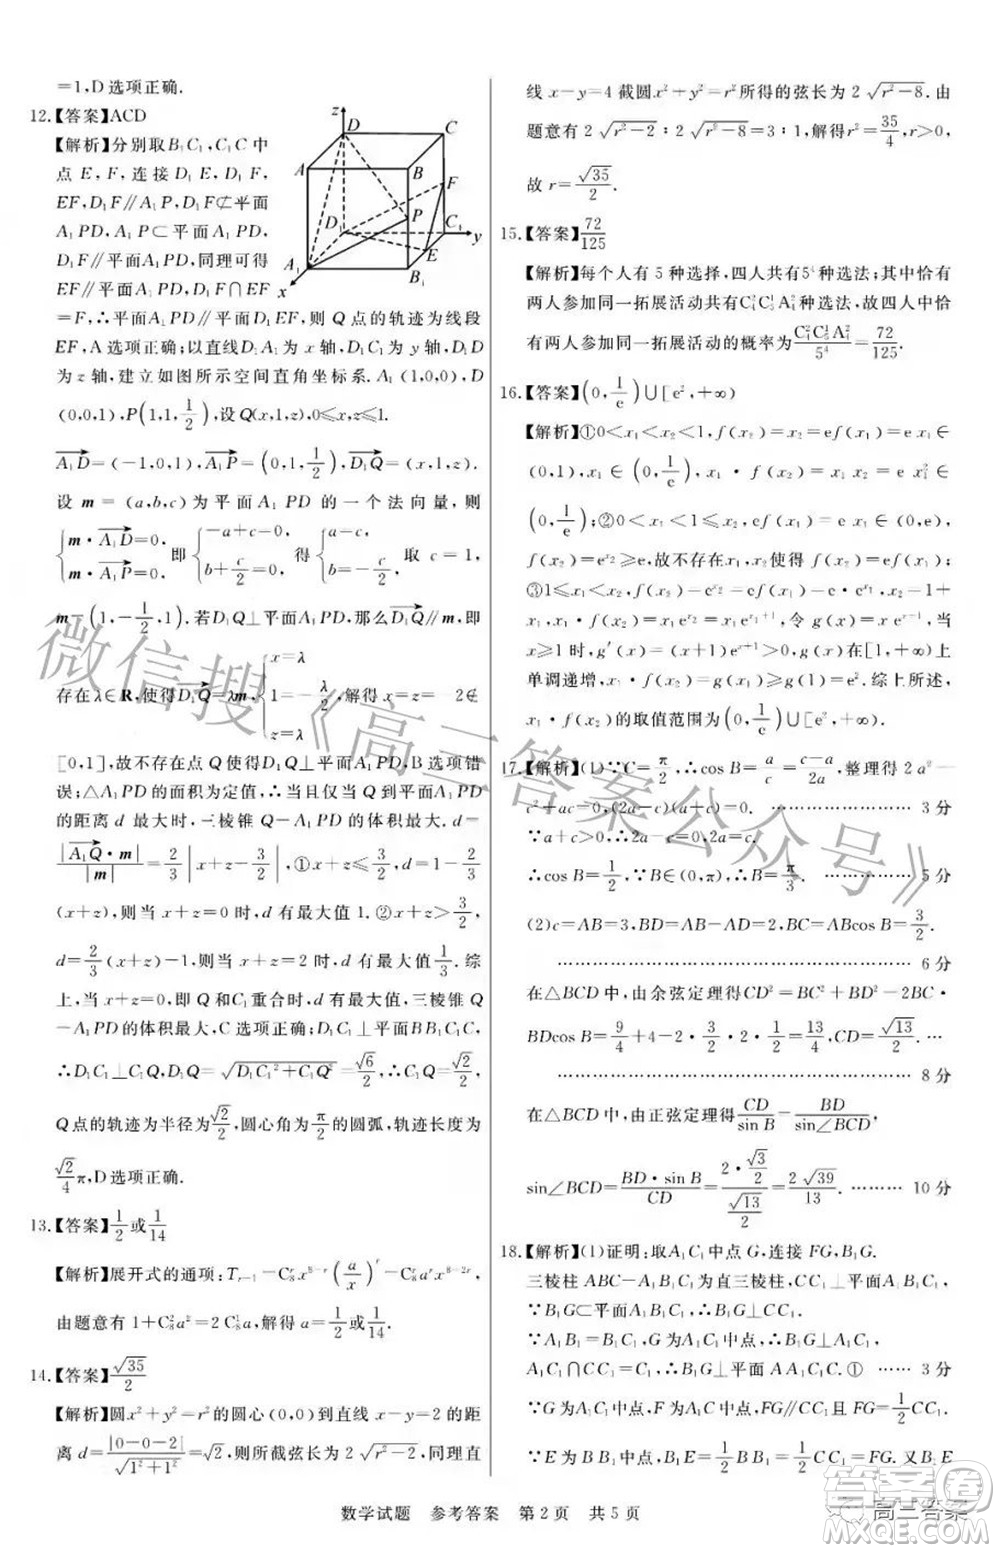 =1,D选项正确.
12.【答案】ACD
【解析】分别取B₁C₁,C₁C中
点E,F,连接D₁E,D₁F,
EF,D₁F∥A₁P,D₁F⊄平面
A₁PD,A₁P⊂平面A₁PD,
D₁F∥平面A₁PD,同理可得
EF∥平面A₁PD,D₁F∩EF
=F,∴平面A₁PD∥平面D₁EF,则Q点的轨迹为线段
EF,A选项正确;以直线D₁A₁为x轴,D₁C₁为y轴,D₁D
为z轴,建立如图所示空间直角坐标系.A₁(1,0,0),D
(0,0,1),P(1,1,1/2),设Q(x,1,z),0≤x,z≤1.
A₁D=(-1,0,1),A₁P=(0,1,1/2),D₁Q=(x,1,z).
设m=(a,b,c)为平面A₁PD的一个法向量,则
{m·A₁D=0, m·A₁P=0, 即{-a+c=0, b+c/2=0, 得{a=c, b=-c/2, 取c=1,
m=(1,-1/2,1).若D₁Q⊥平面A₁PD,那么D₁Q∥m,即
存在λ∈R,使得D₁Q=λm,{x=λ 1=-λ/2, z=λ 解得x=z=-2∉
[0,1],故不存在点Q使得D₁Q⊥平面A₁PD,B选项错
误;△A₁PD的面积为定值,∴当且仅当Q到平面A₁PD
的距离d最大时,三棱锥Q-A₁PD的体积最大.d=
|A₁Q·m|/|m|=2/3|x+z-3/2|,①x+z≤3/2,d=1-2/3
(x+z),则当x+z=0时,d有最大值1.②x+z>3/2,
d=2/3(x+z)-1,则当x+z=2时,d有最大值1/3.综
上,当x+z=0,即Q和C₁重合时,三棱锥Q
-A₁PD的体积最大,C选项正确;D₁C₁⊥平面BB₁C₁C,
∴D₁C₁⊥C₁Q,D₁Q=√(D₁C₁²+C₁Q²)=√6/2,C₁Q=√2/2,
Q点的轨迹为半径为√2/2,圆心角为π/2的圆弧,轨迹长度为
√2/4π,D选项正确.
13.【答案】1/2或1/14
【解析】展开式的通项:Tᵣ₋₁=C₈ʳx⁸⁻ʳ(a/x)ʳ=C₈ʳaʳx⁸⁻²ʳ,
由题意可得1+C₈²a²=2C₈¹a,解得a=1/2或1/14.
14.【答案】√35/2
【解析】圆x²+y²=r²的圆心(0,0)到直线x-y=2的距
离d=|0-0-2|/√(1²+1²)=√2,则所截弦长为2√(r²-2),同理直
线x-y=4截圆x²+y²=r²所得的弦长为2√(r²-8).由
题意有2√(r²-2):2√(r²-8)=3:1,解得r²=35/4,r>0,
故r=√35/2.
15.【答案】72/125
【解析】每个人有5种选择,四人共有5⁴种选法;其中恰有
两人参加同一拓展活动共有C₄²C₅¹A₄²种选法,故四人中恰
有两人参加同一拓展活动的概率为C₄²C₅¹A₄²/5⁴=72/125.
16.【答案】(0,1/e)∪[e²,+∞)
【解析】①0<x₁<x₂<1,f(x₂)=ef(x₁)=ex₁∈
(0,1),x₁∈(0,1/e),x₁·f(x₂)=x₁·ef(x₁)=ex₁²∈
(0,1/e);②0<x₁<1≤x₂,ef(x₁)=ex₁∈(0,e),
f(x₂)=eˣ²≥e,故不存在x₁,x₂使得f(x₂)=ef(x₁);
③1≤x₁<x₂,f(x₂)=eˣ²=ef(x₁)=e·eˣ¹,x₂=1+
x₁,x₁·f(x₂)=x₁eˣ²=x₁eˣ¹⁺¹,令g(x)=xeˣ⁺¹,当
x≥1时,g′(x)=(x+1)eˣ⁺¹>0,g(x)在[1,+∞)上
单调递增,x₁·f(x₂)=g(x₁)≥g(1)=e².综上所述,
x₁·f(x₂)的取值范围为(0,1/e)∪[e²,+∞).
17.【解析】(1)∵C=π/2,∴cos B=a/c=(c-a)/2a,整理得2a²-
c²+ac=0,(2a-c)(a+c)=0. ………… 3分
∵a+c>0,∴2a-c=0,2a=c.
∴cos B=1/2,∵B∈(0,π),∴B=π/3. ………… 5分
(2)c=AB=3,BD=AB-AD=2,BC=ABcos B=3/2.
………… 6分
在△BCD中,由余弦定理得CD²=BC²+BD²-2BC·
BDcos B=9/4+4-2·3/2·2·1/2=13/4,CD=√13/2. …
………… 8分
在△BCD中,由正弦定理得CD/sin B=BD/sin∠BCD,
sin∠BCD=BD·sin B/CD=(2·√3/2)/(√13/2)=2√39/13. ……… 10分
18.【解析】(1)证明:取A₁C₁中点G,连接FG,B₁G.
三棱柱ABC-A₁B₁C₁为直三棱柱,CC₁⊥平面A₁B₁C₁.
∵B₁G⊂平面A₁B₁C₁,∴B₁G⊥CC₁.
∵A₁B₁=B₁C₁,G为A₁C₁中点,∴B₁G⊥A₁C₁.
A₁C₁∩CC₁=C₁,∴B₁G⊥平面AA₁C₁C.① …… 3分
∵G为A₁C₁中点,F为A₁C中点,∴FG∥CC₁,FG=1/2CC₁.
∵E为BB₁中点,∴B₁E=1/2BB₁=1/2CC₁=FG.∵B₁E
数学试题 参考答案 第2页 共5页
z
D
C
A
B
F
D₁
P
C₁
y
E
A₁
B₁
x
微信搜《高三答案公众号》
高三答案
答案圈
MXQE.COM